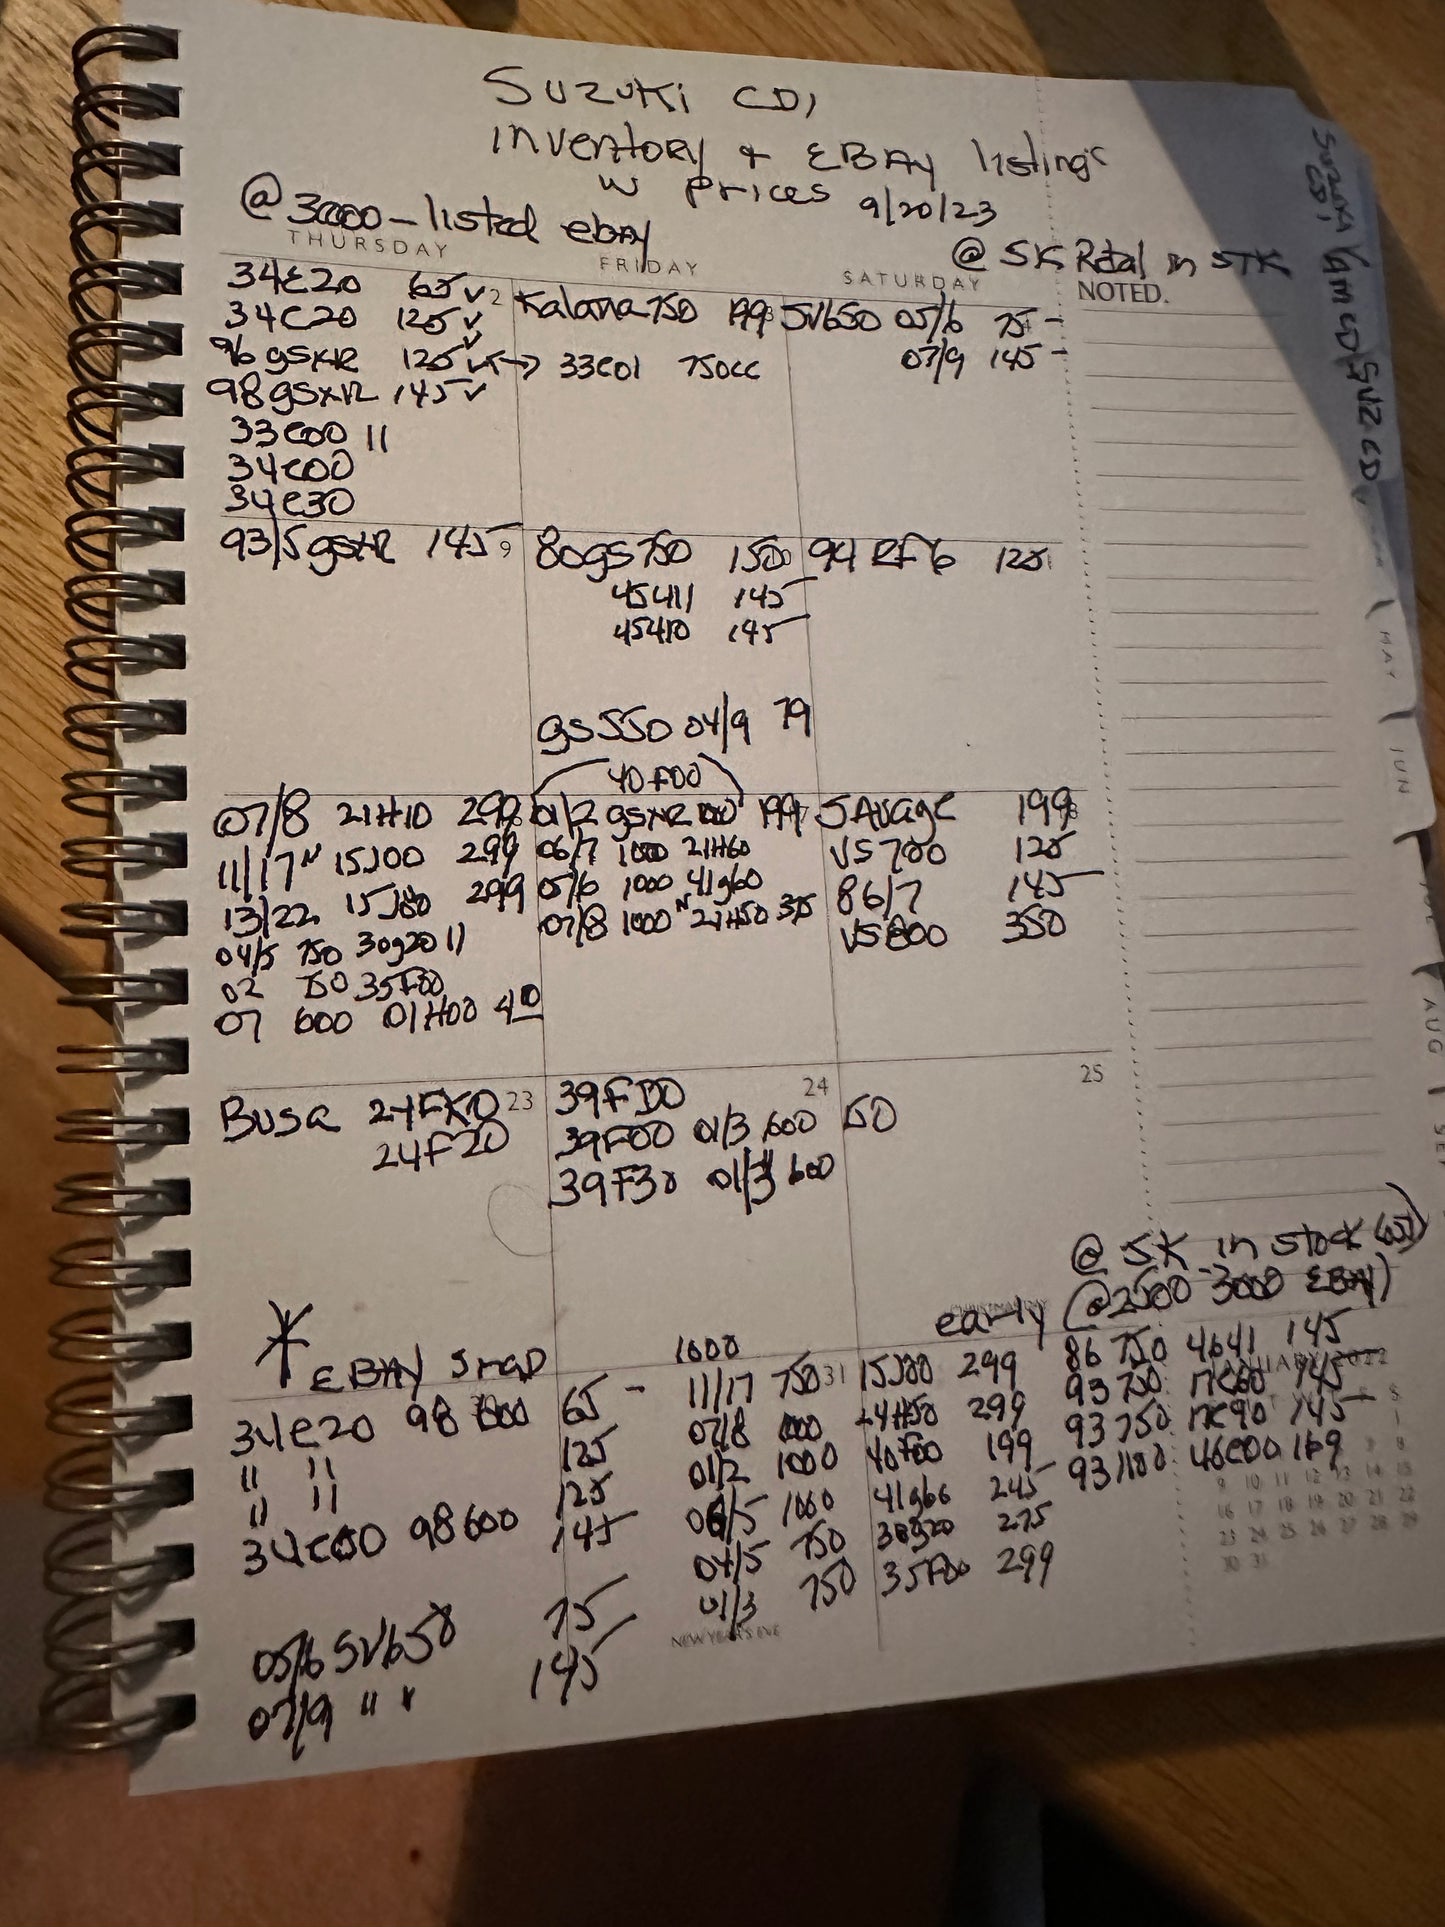 Suzuki CDI
inventory + EBAY listings
w prices 9/20/23
@3000 - listed ebay
@ 5K Retal in STK
THURSDAY
FRIDAY
SATURDAY
NOTED.
34E20 65 ✓
34C20 125 ✓
96 gsxr 125 ✓
98 gsxr 145 ✓
33e00 11
34e00
34e30
2
Katana 750 199
→ 33e01 750cc
SV650 05/6 75 -
07/9 145 -
93/5 gsxr 145
9
80gs 750 150
45411 145
45410 145
gs550 04/9 79
94 RF6 125
07/8 21H10 299
11/17 N 15J00 299
13/22 15J80 299
04/5 750 30g20 11
02 750 35F00
07 600 01H00 40
40F00
01/2 gsxr 199
06/7 1000 21H60
05/6 1000 41g60
07/8 1000 N 21H50 375
SAvage 199
VS700 125
86/7 145
VS800 350
Busa 24FK0
24F20
23
39FD0
39F00 01/3 600 150
39F30 01/3 600
24
25
@ 5K in stock
(@2500 - 3000 EBAY)
early
* EBAY
34e20 98 600 65 -
" " 125
" " 125
98 600 145
05/6 SV650 75
07/9 " " 145
1000
11/17 750 15J00 299
07/8 1000 299
01/2 1000 40F00 199
1000 41g60 245
04/5 750 30g20 275
01/3 750 35F00 299
31
NEW YEAR'S EVE
86 750 4641 145
93 750 17C60 145
93 750 17C90 145
93 1100 46e00 169
JANUARY 2022
9 10 11 12 13 14 15
16 17 18 19 20 21 22
23 24 25 26 27 28 29
30 31
MAY
JUN
AUG